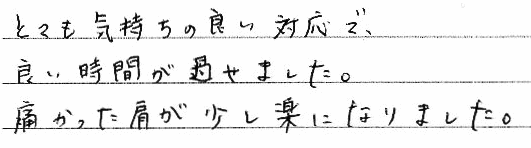 とても気持ちの良い対応で、
良い時間が過せました。
痛かった肩が少し楽になりました。